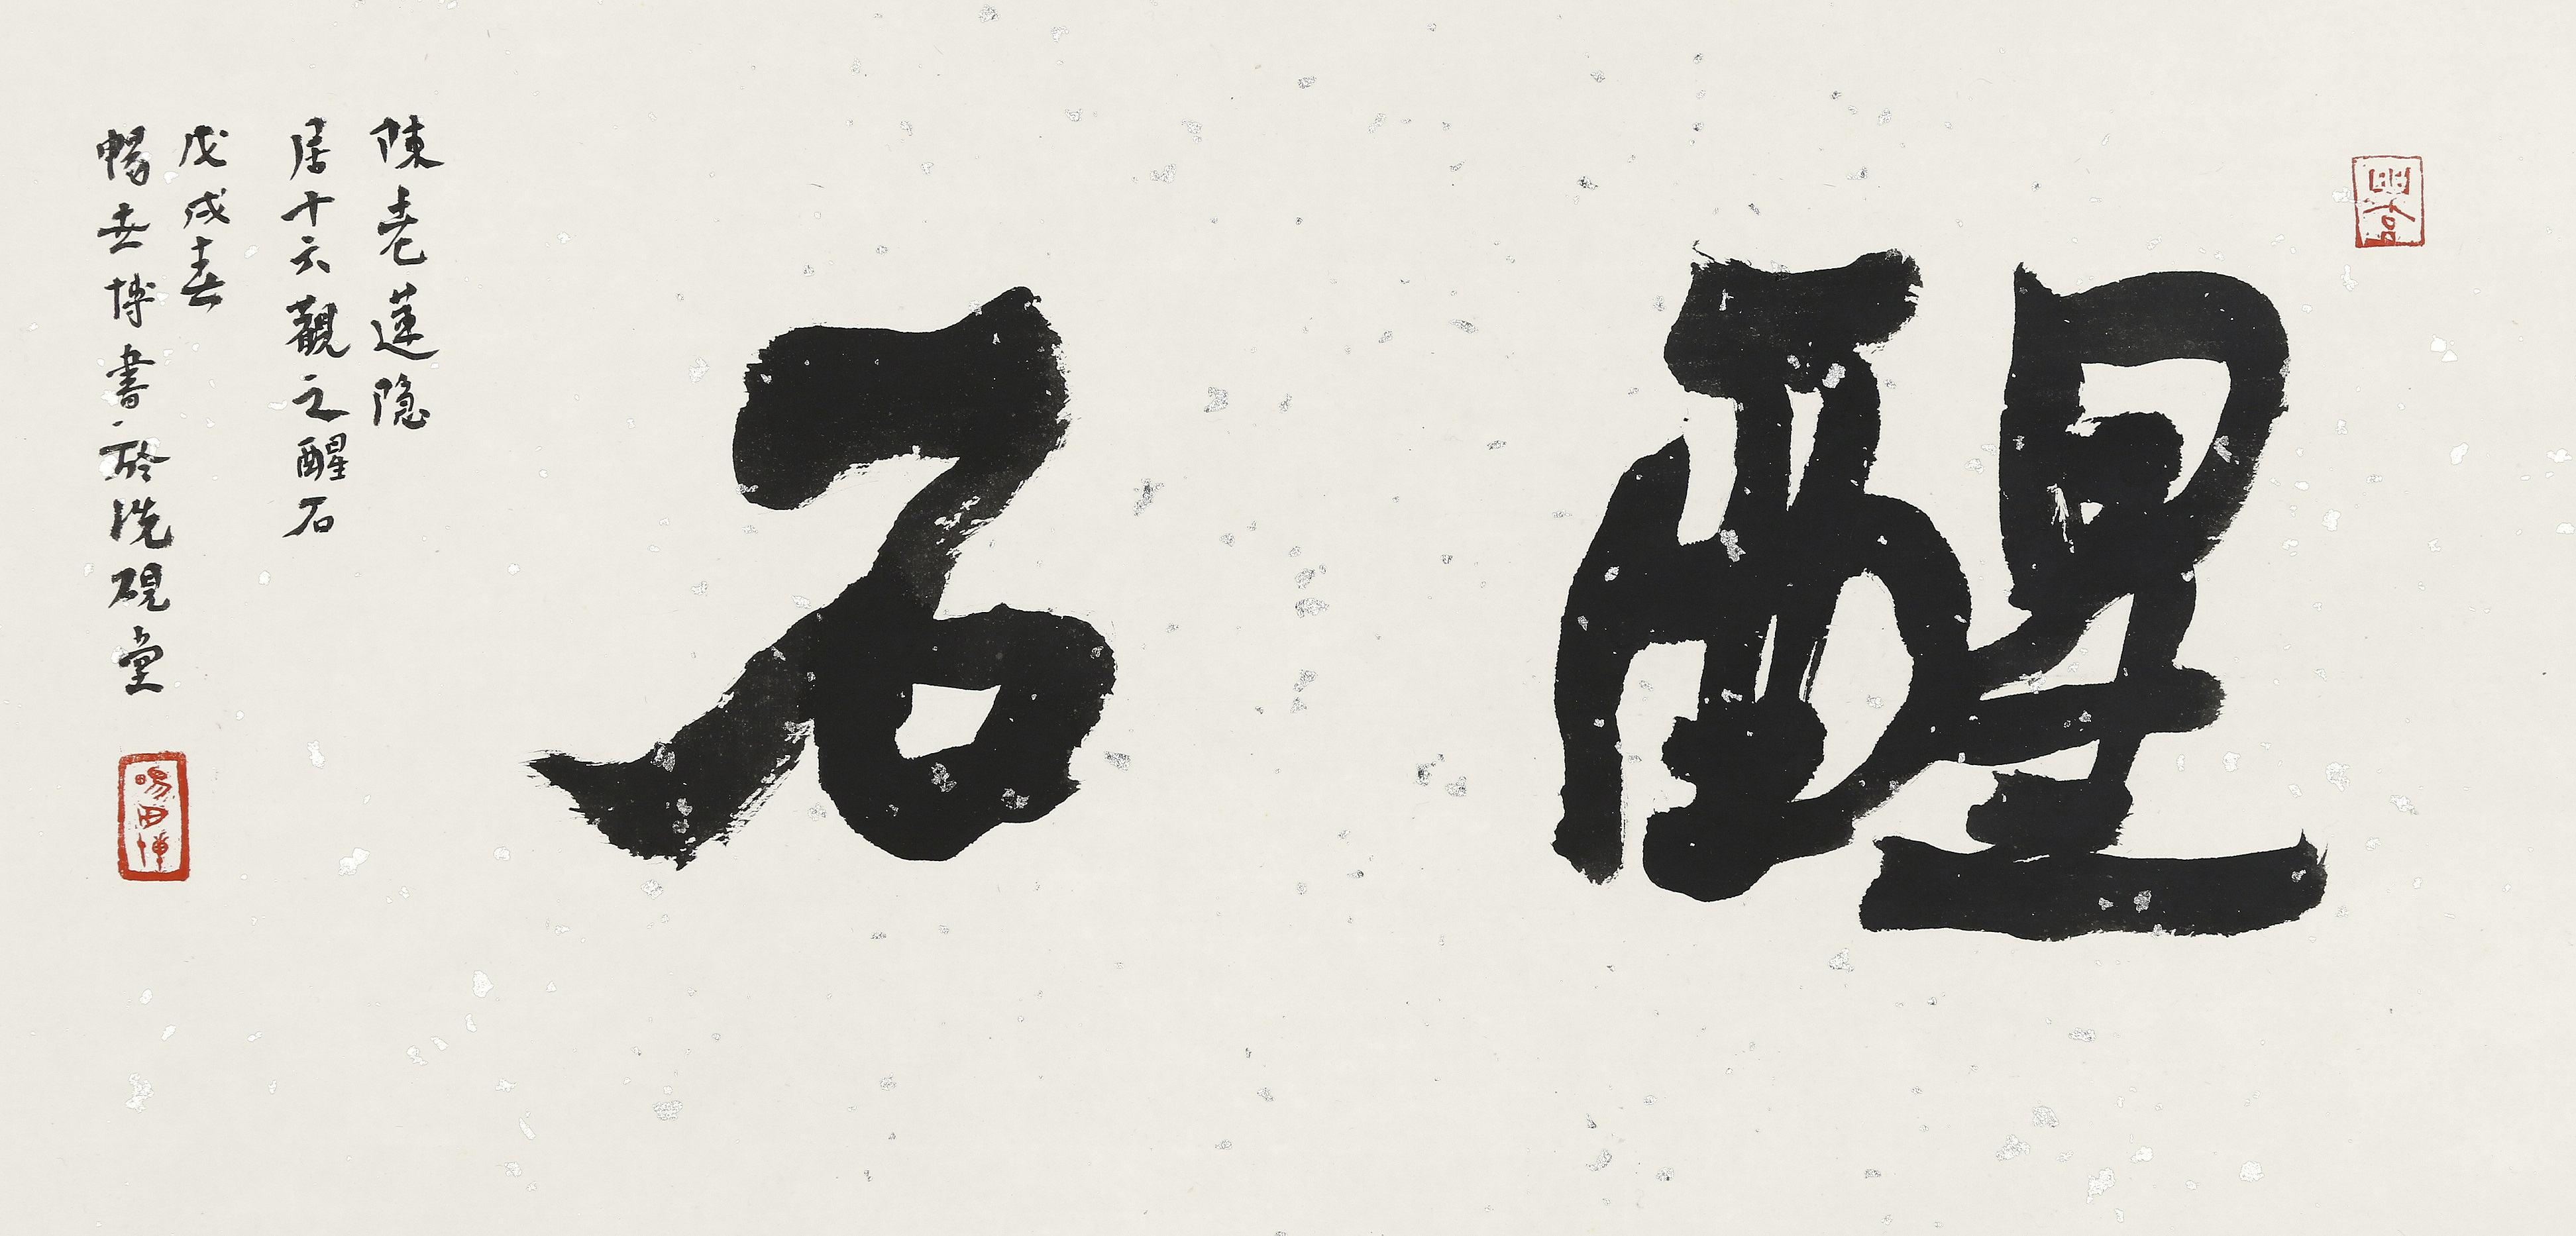 醒石
陳老蓮隱
居十六觀之醒石
戊戌春
暢世博書於洗硯堂